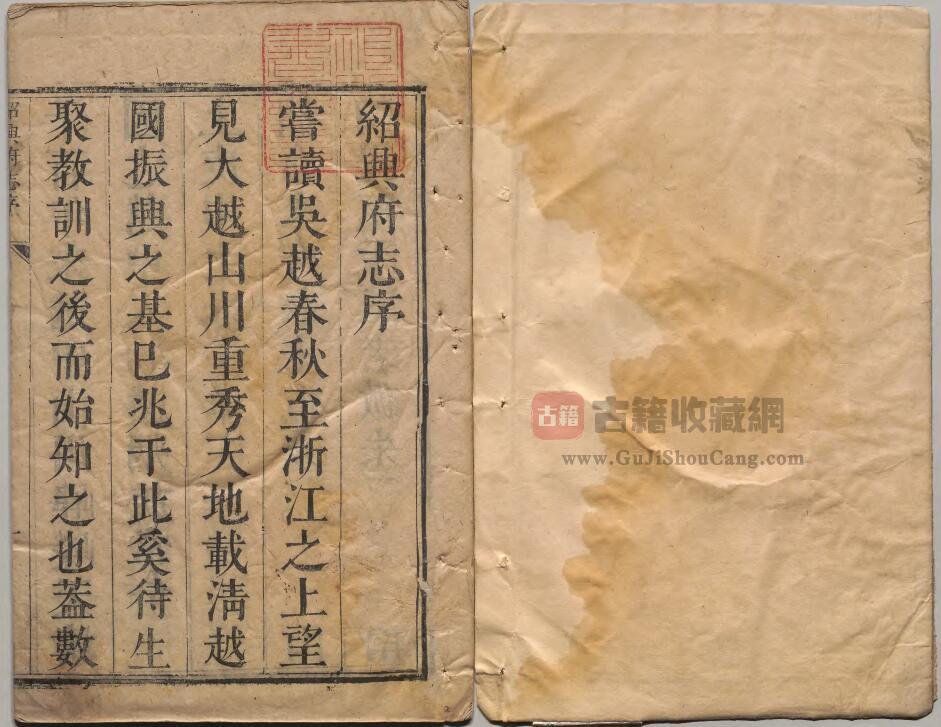 紹興府志序
嘗讀吳越春秋至浙江之上望
見大越山川重秀天地載淸越
國振興之基已兆于此奚待生
聚敎訓之後而始知之也葢數
紹興府志序
古籍
古籍收藏網
www.GuJiShouCang.com